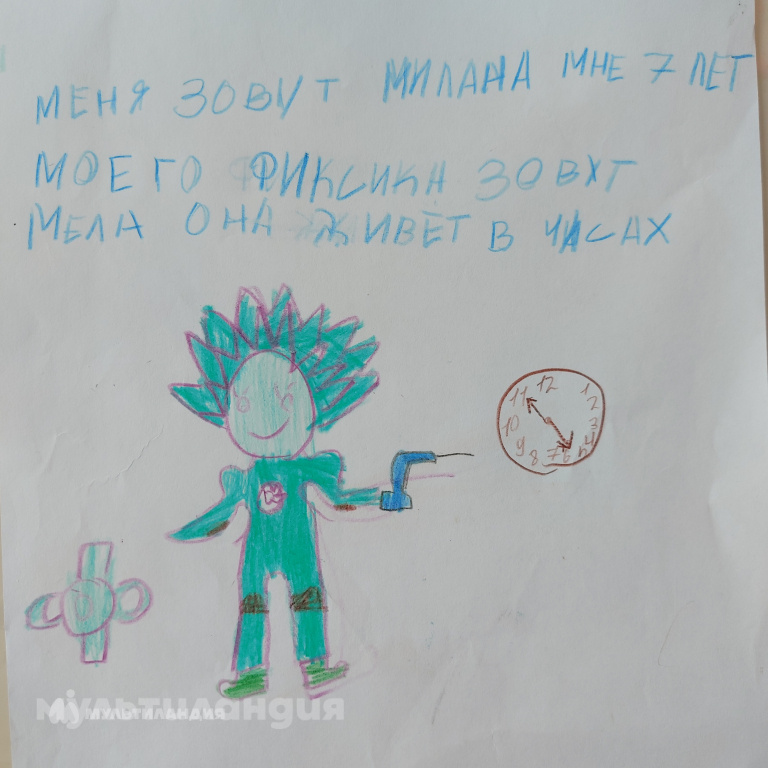 МЕНЯ ЗОВУТ МИЛАНА МНЕ 7 ЛЕТ
МОЕГО ФИКСИКА ЗОВУТ
МЕЛА ОНА ЖИВЁТ В ЧАСАХ
11 12 1
10 2
9 3
8 7 6 5 4
мультиландия
МУЛЬТИЛАНДИЯ